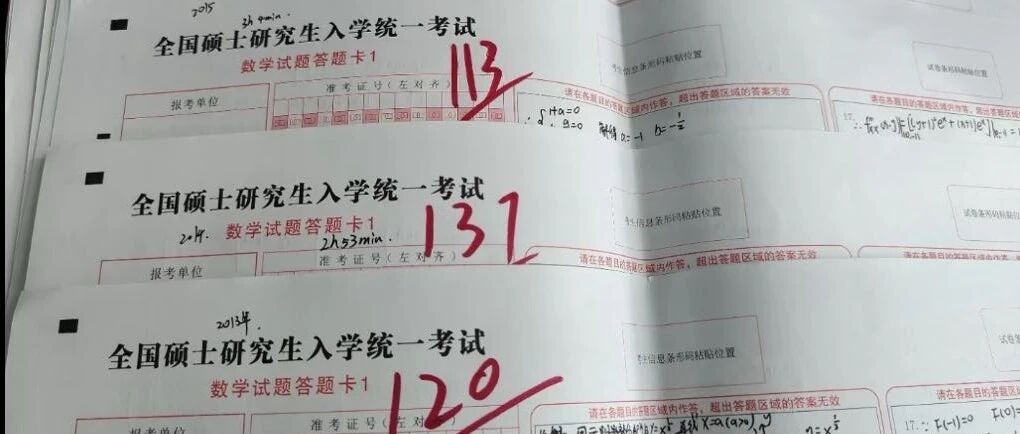 2015
3h 4min.
全国硕士研究生入学统一考试
数学试题答题卡1
113
报考单位
准考证号(左对齐)
考生信息条形码粘贴位置
试卷条形码粘贴位置
请在各题目的答题区域内作答,超出答题区域的答案无效
请在各题目的答题区域内作答,超出答题区
1+a=0
a=-1 b=-1/2
17.
全国硕士研究生入学统一考试
2014.
数学试题答题卡1
2h53min.
137
报考单位
准考证号(左对齐)
考生信息条形码粘贴位置
试卷条形码粘贴位置
请在各题目的答题区域内作答,超出答题区域的答案无效
2013年.
全国硕士研究生入学统一考试
数学试题答题卡1
120
报考单位
准考证号(左对齐)
考生信息条形码粘贴位置
试卷
请在各题目的答题区域内作答,超出答题区域的答案无效
请在各题目的答题区
17. ∵ F(-1)=0 F(0)=